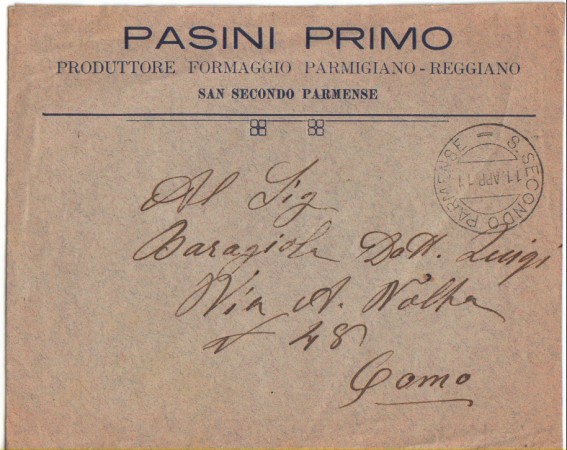 PASINI PRIMO
PRODUTTORE FORMAGGIO PARMIGIANO-REGGIANO
SAN SECONDO PARMENSE
S. SECONDO PARMENSE
11. APR. 1
Al Sig
Baragiola Dott. Luigi
Via A. Volta
48
Como